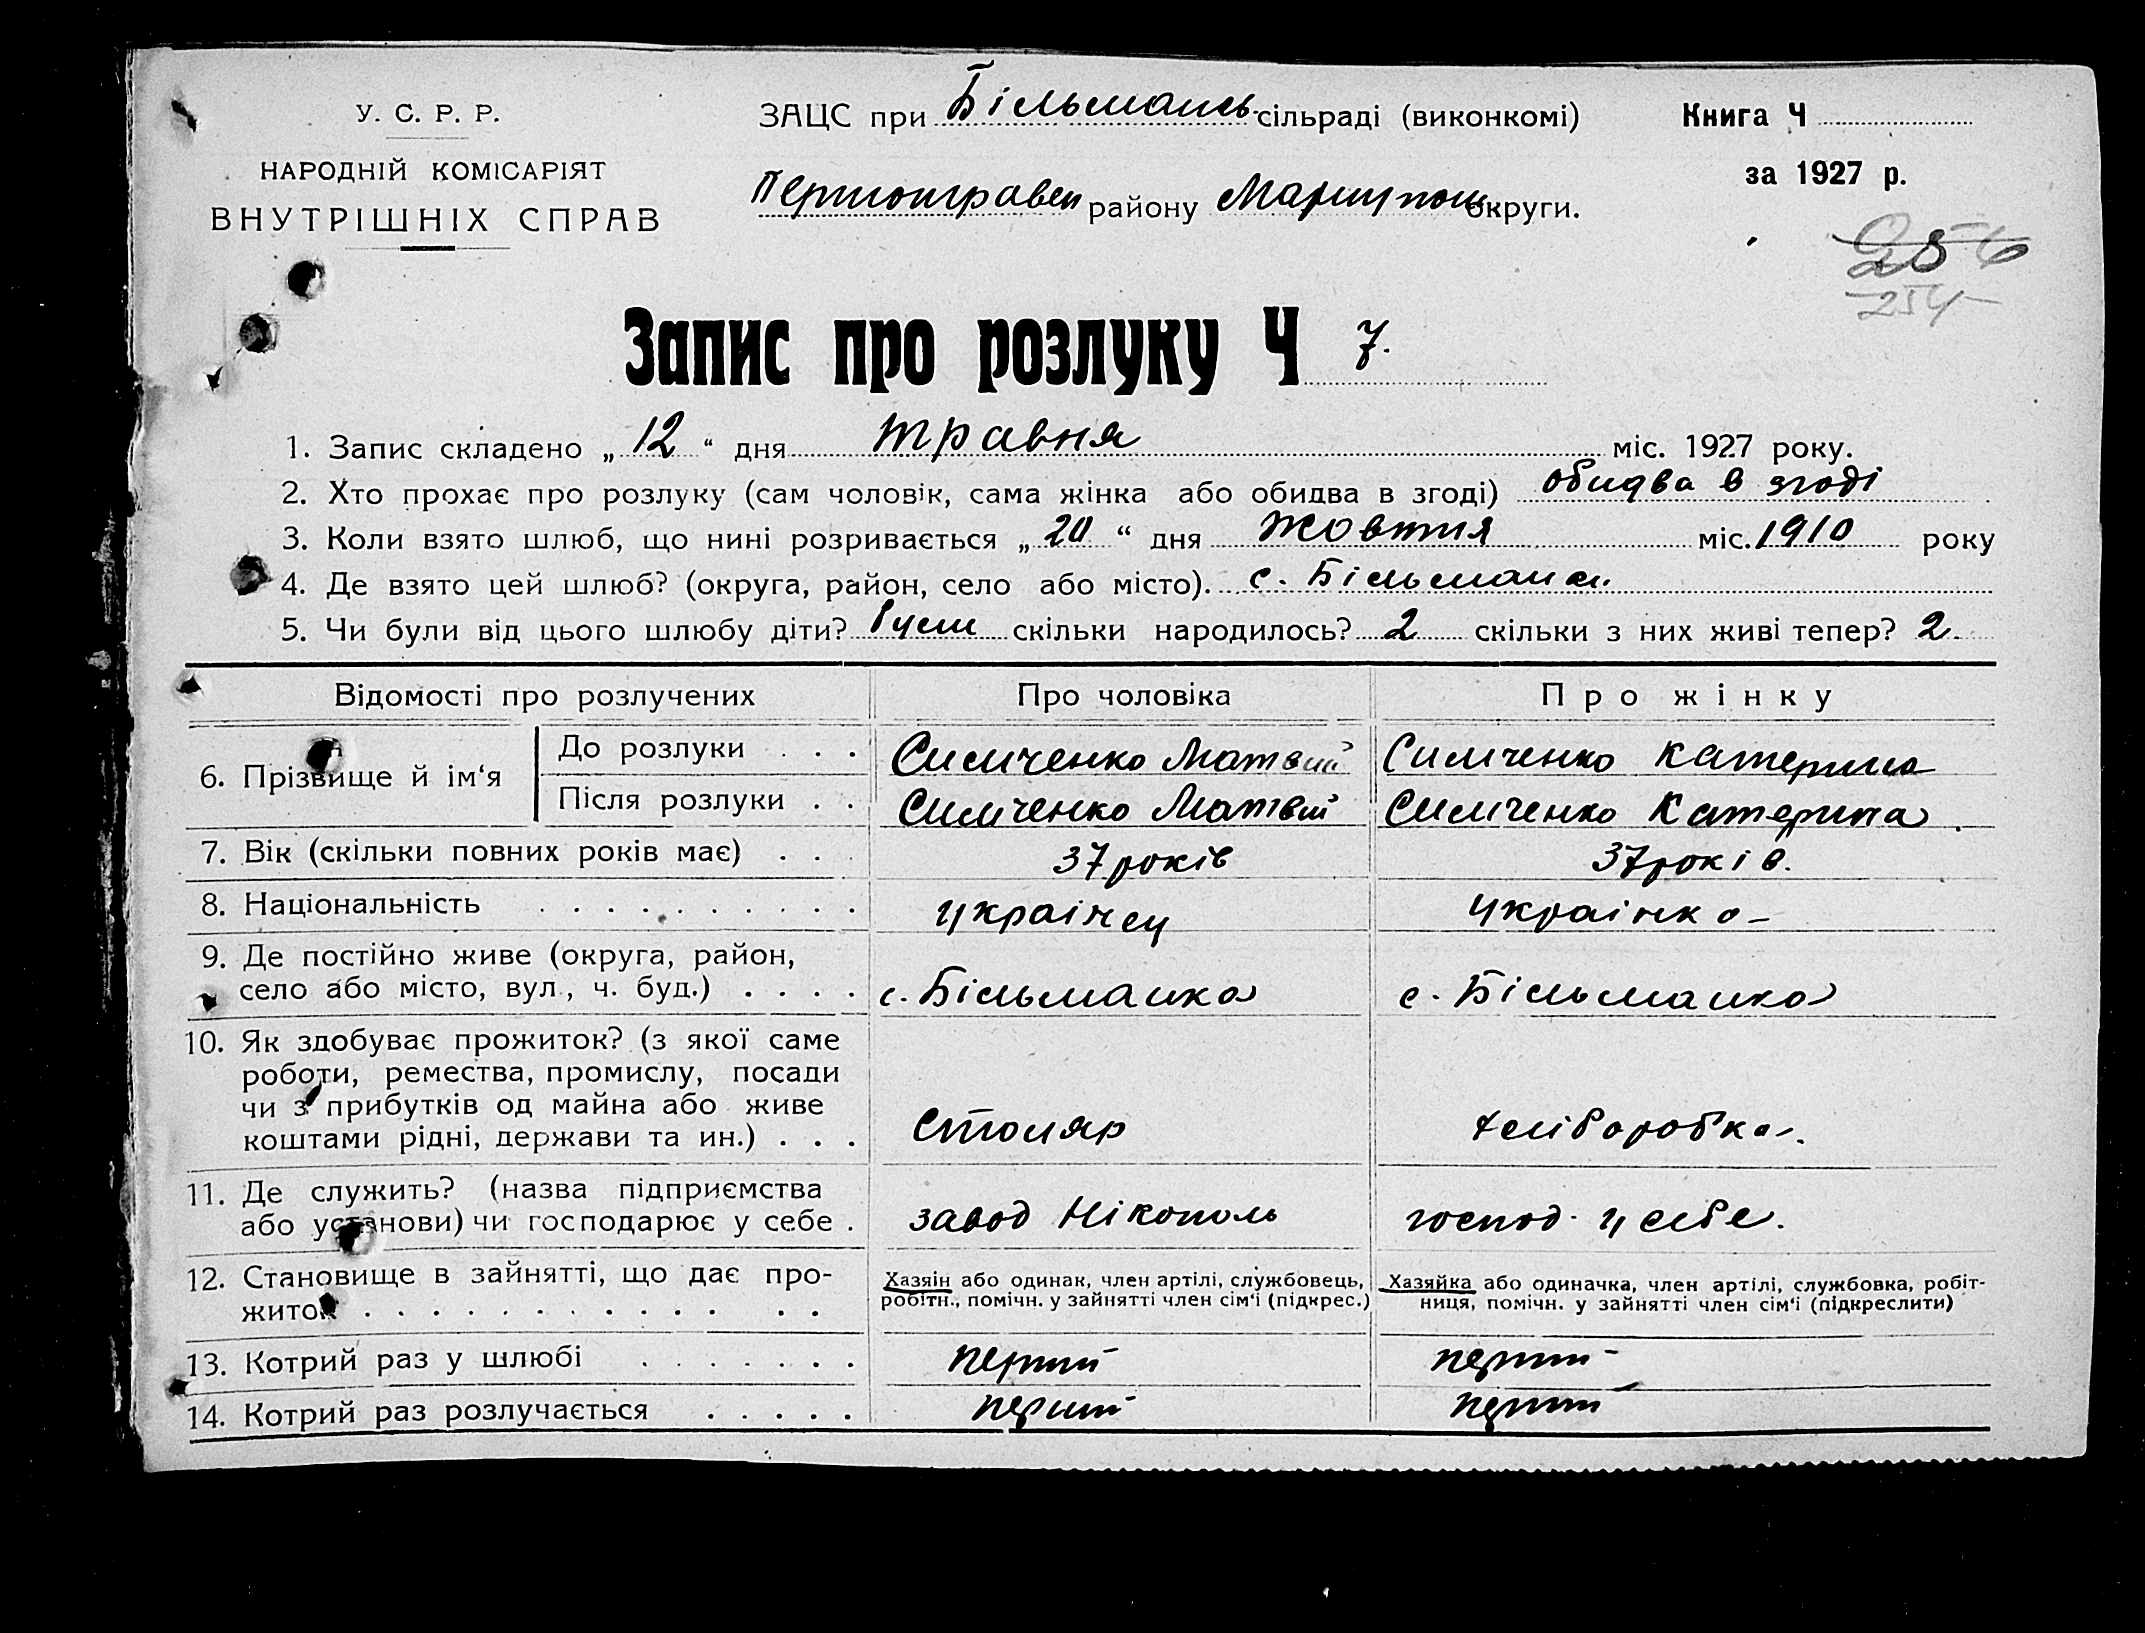 У. С. Р. Р.
НАРОДНІЙ КОМІСАРІЯТ
ВНУТРІШНІХ СПРАВ
ЗАЦС при Більмансь. сільраді (виконкомі)
Першотравен району Маріупол округи.
Книга Ч
за 1927 р.
256
254
Запис про розлуку Ч 7.
1. Запис складено „ 12 “ дня травня міс. 1927 року.
2. Хто прохає про розлуку (сам чоловік, сама жінка або обидва в згоді) обидва в згоді
3. Коли взято шлюб, що нині розривається „ 20 “ дня жовтня міс. 1910 року
4. Де взято цей шлюб? (округа, район, село або місто). с. Більманка.
5. Чи були від цього шлюбу діти? скільки народилось? 2 скільки з них живі тепер? 2.
Відомості про розлучених Про чоловіка Про жінку
6. Прізвище й ім‘я
До розлуки . . . Симченко Матвий Симченко Катерина
Після розлуки . . Симченко Матвій Симченко Катерина.
7. Вік (скільки повних років має) . . . 37 років 37 років.
8. Національність . . . . . . . . . . українец українка
9. Де постійно живе (округа, район,
село або місто, вул., ч. буд.) . . . . с. Більманка с. Більманка
10. Як здобуває прожиток? (з якої саме
роботи, ремества, промислу, посади
чи з прибутків од майна або живе
коштами рідні, держави та ин.) . . . Столяр хліборобка.
11. Де служить? (назва підприємства
або установи) чи господарює у себе . завод Нікополь господ. у себе.
12. Становище в зайнятті, що дає про-
житок . . . . . . . . . . . . .
Хазяін або одинак, член артілі, службовець,
робітн., помічн. у зайнятті член сім‘і (підкрес.)
Хазяйка або одиначка, член артілі, службовка, робіт-
ниця, помічн. у зайнятті член сім‘і (підкреслити)
13. Котрий раз у шлюбі . . . . . . . перший перший
14. Котрий раз розлучається . . . . . перший перший